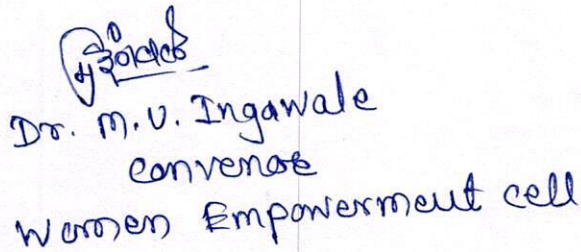 Dr. M.V. Ingawale
Convenor
Women Empowerment cell